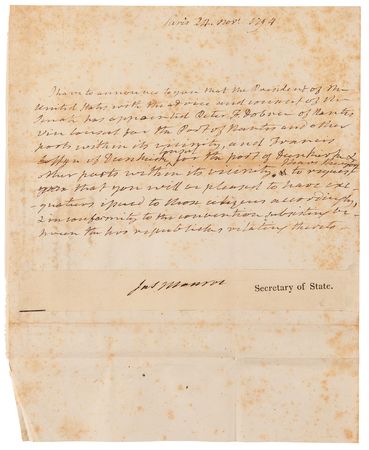 Paris 24. Novr. 1794
I have to announce to you that the President of the
United States with the advice and consent of the
Senate has appointed Peter F. Dobree of Nantes
vice consul for the Port of Nantes and other
ports within its vicinity, and Francis
Coffyn of Dunkirk, consul for the port of Dunkirk &
other ports within its vicinity, & to request
that you will be pleased to have exe-
quaturs issued to those citizens accordingly,
& in conformity to the convention subsisting be-
tween the two republicks relating thereto
Jas Monroe Secretary of State.